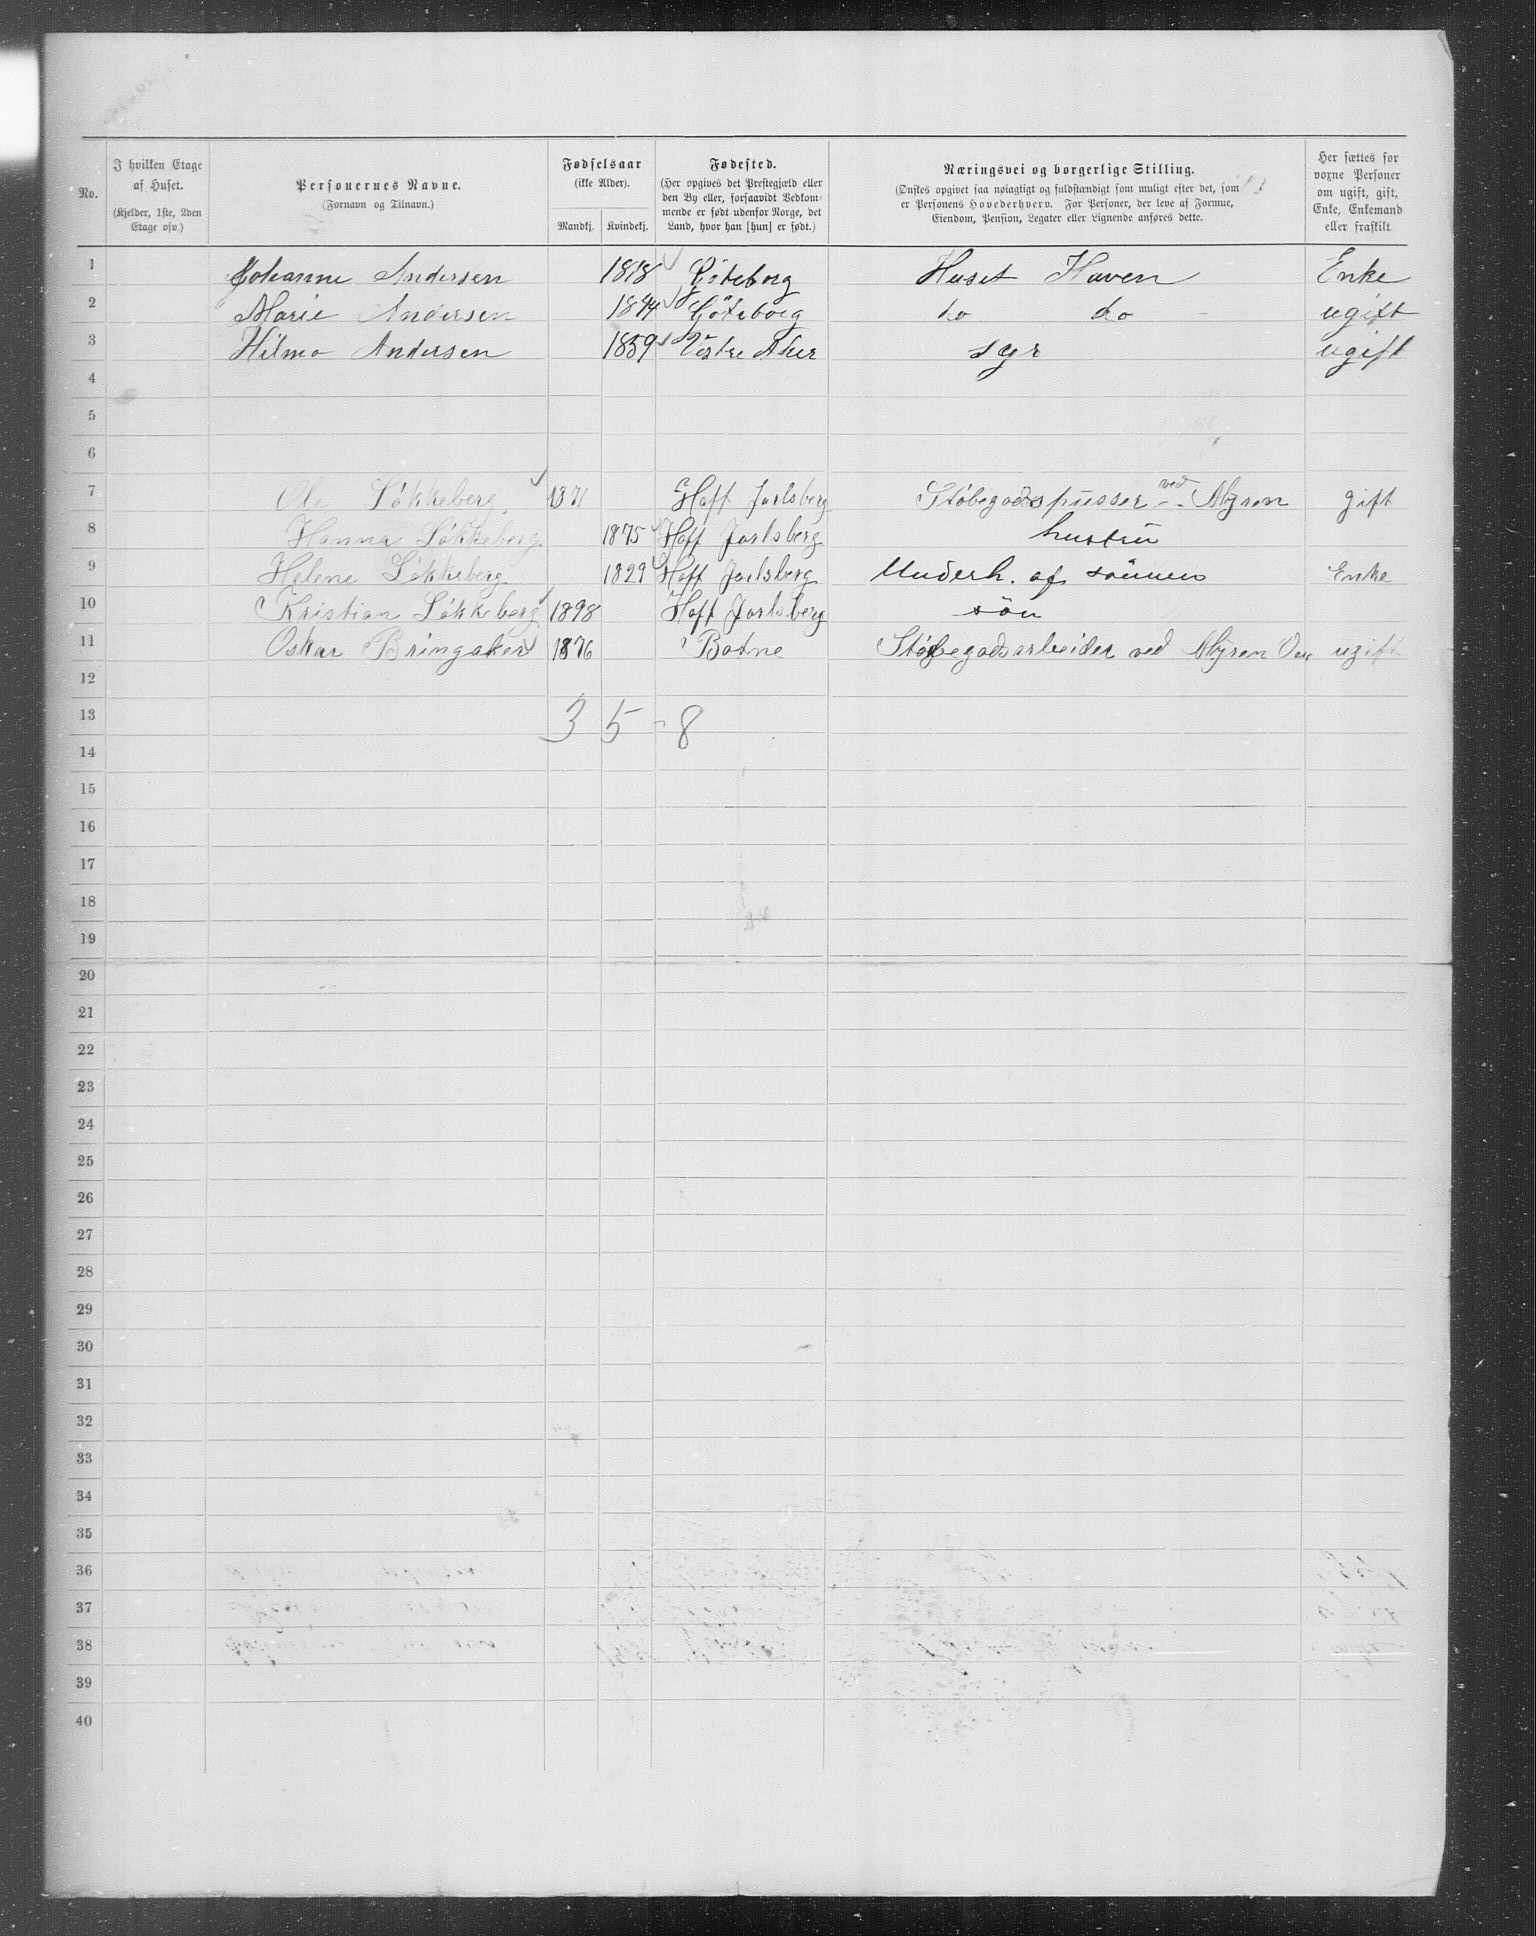 No. | I hvilken Etage af Huset. (Kjelder, 1ste, 2den Etage osv.) | Personernes Navne. (Fornavn og Tilnavn.) | Fødselsaar (ikke Alder). Mandkj. | Kvindekj. | Fødested. (Her opgives det Prestegjæld eller den By eller, forsaavidt Vedkommende er født udenfor Norge, det Land, hvor han [hun] er født.) | Næringsvei og borgerlige Stilling. (Ønskes opgivet saa nøiagtigt og fuldstændigt som muligt efter det, som er Personens Hovederhverv. For Personer, der leve af Formue, Eiendom, Pension, Legater eller Lignende anføres dette.) | Her sættes for voxne Personer om ugift, gift, Enke, Enkemand eller fraskilt.
1 Johanne Andersen 1818 Göteborg Huset Haven Enke
2 Marie Andersen 1844 Göteborg do do ugift
3 Hilma Andersen 1859 Vestre Aker syr ugift
4
5
6
7 Ole Løkkeberg 1871 Hoff Jarlsberg Støbegodspusser ved Myren gift
8 Hanna Løkkeberg 1875 Hoff Jarlsberg hustru
9 Helene Løkkeberg 1829 Hoff Jarlsberg Underh. af sønnen Enke
10 Kristian Løkkeberg 1898 Hoff Jarlsberg søn
11 Oskar Bringaker 1876 Botne Støbegodsarbeider ved Myren ugift
12
13 3 5 - 8
14
15
16
17
18
19
20
21
22
23
24
25
26
27
28
29
30
31
32
33
34
35
36
37
38
39
40